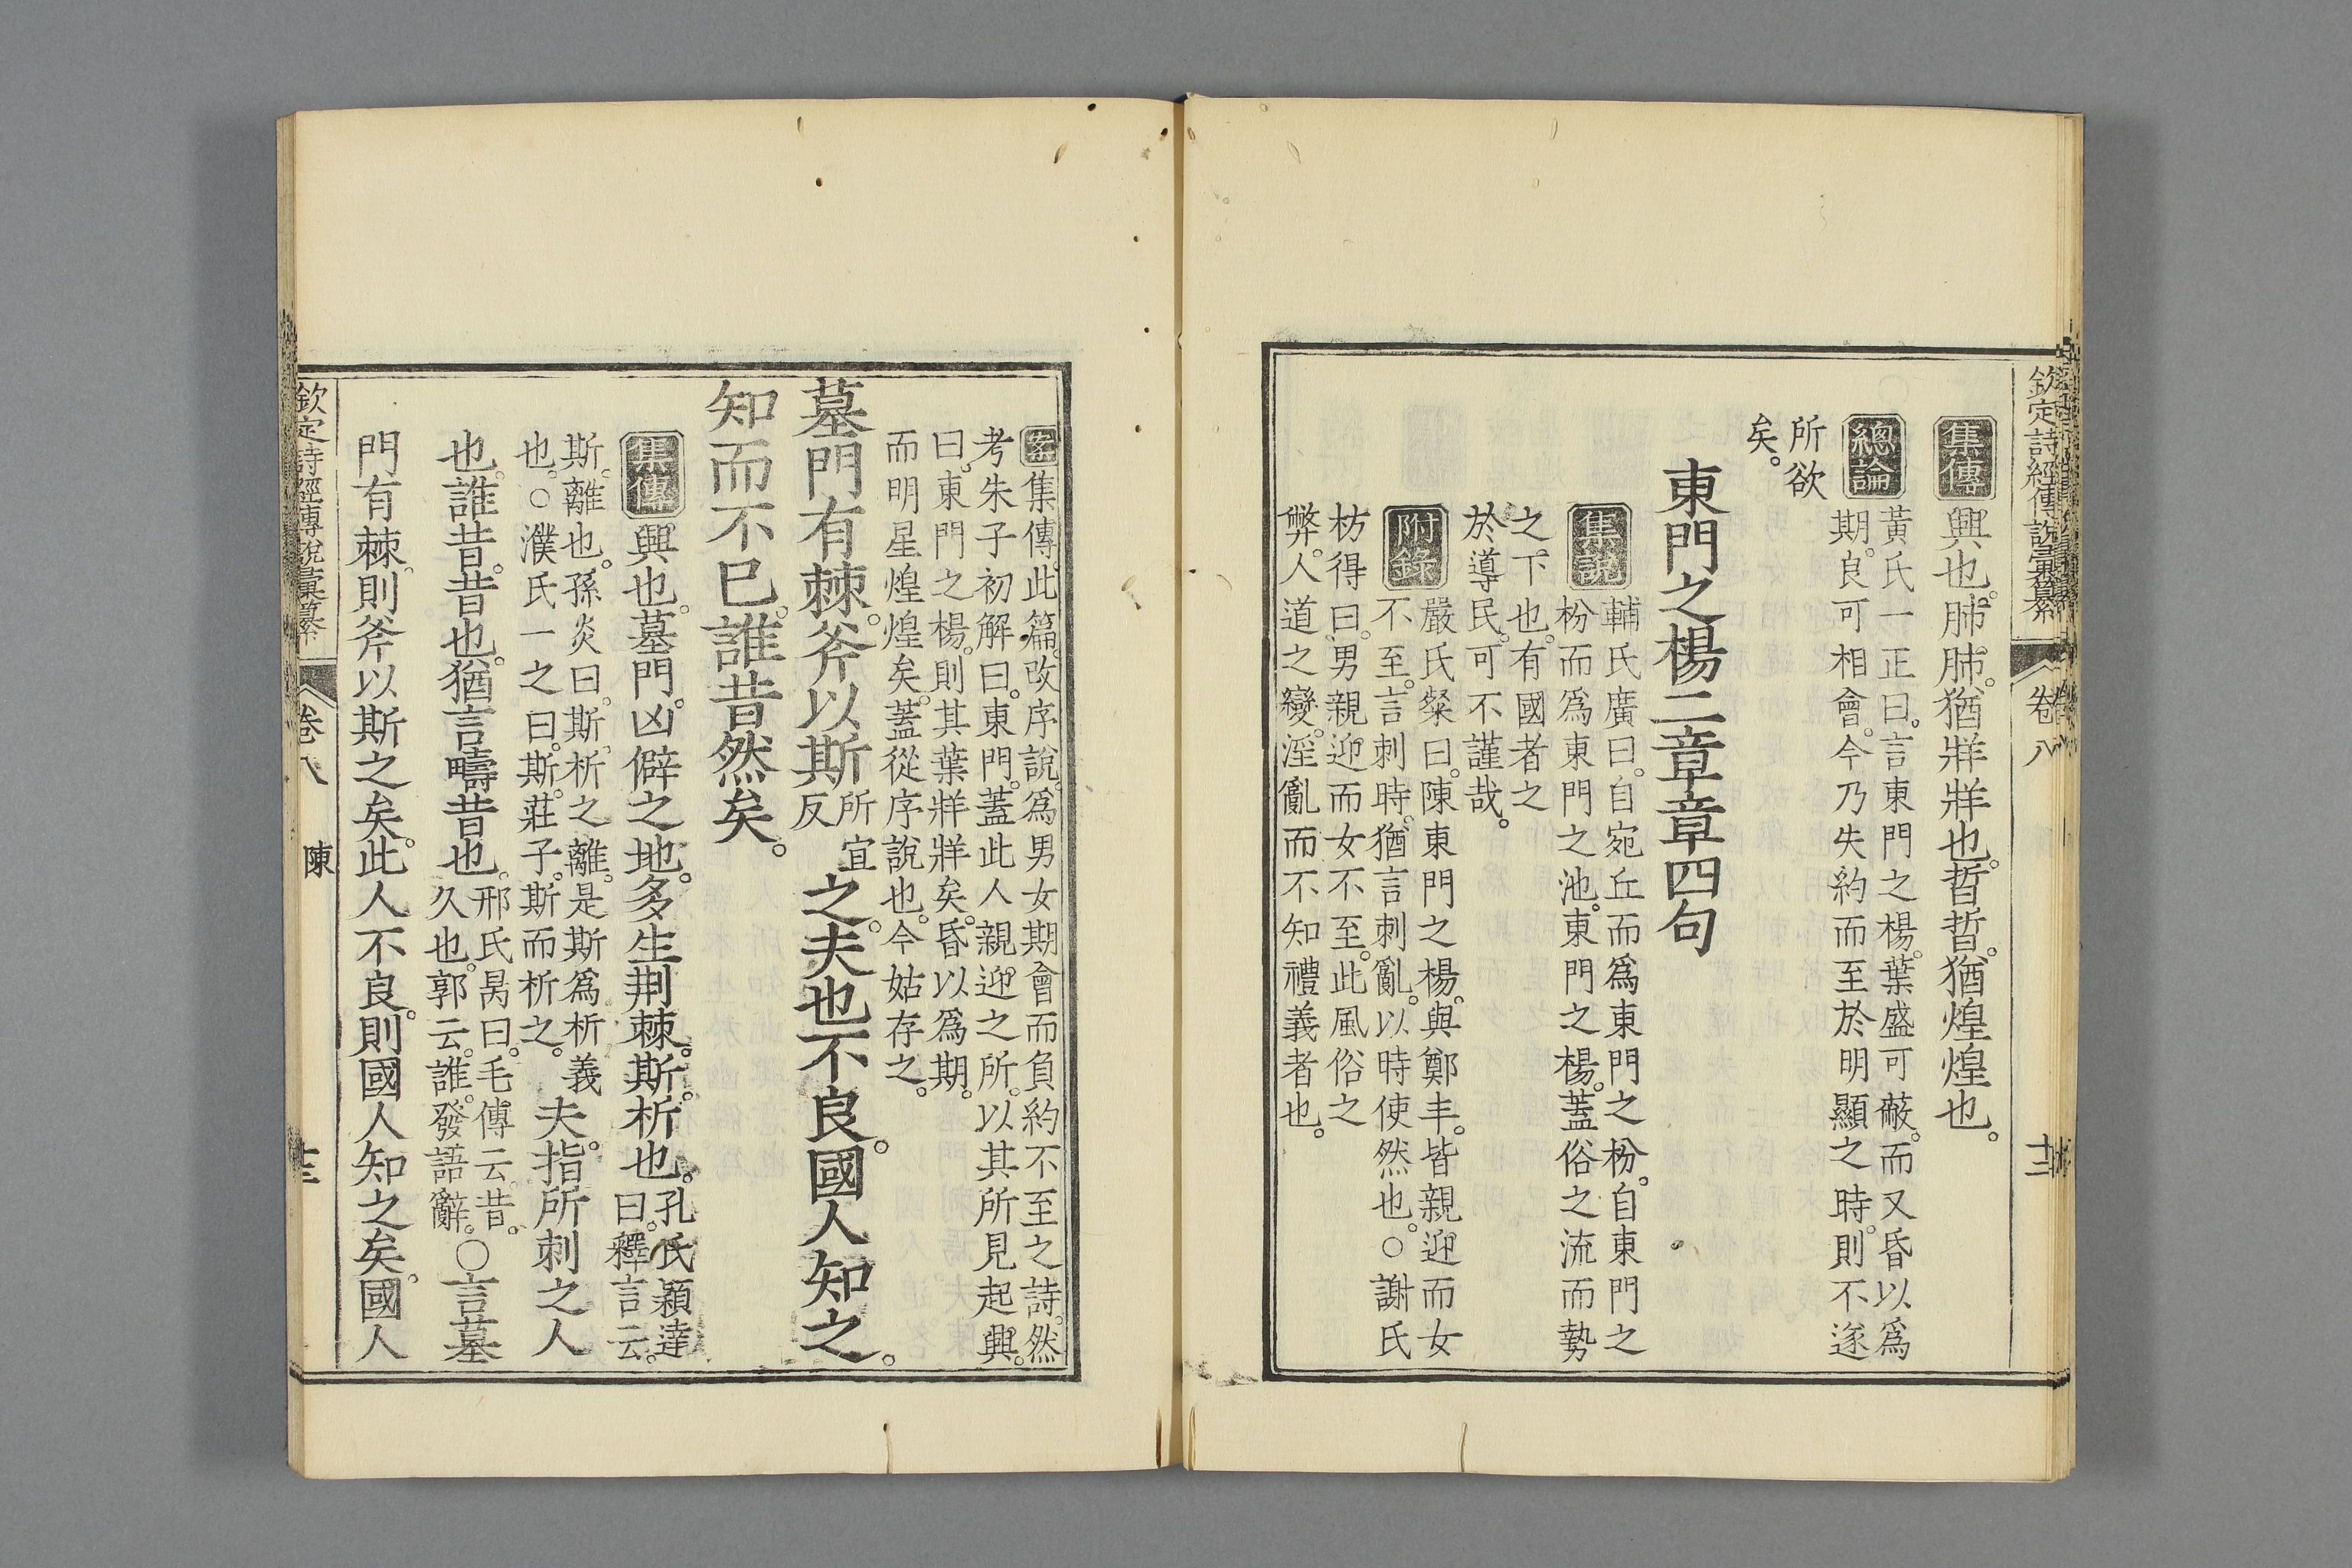 欽定詩經傳說彙纂 卷八 十二
集傳 興也。肺肺。猶牂牂也。晢晢。猶煌煌也。
總論 黃氏一正曰。言東門之楊。葉盛可蔽。而又昏以爲
期。良可相會。今乃失約而至於明顯之時。則不遂
所欲
矣。
東門之楊二章章四句
集說 輔氏廣曰。自宛丘而爲東門之枌。自東門之
枌而爲東門之池。東門之楊。蓋俗之流而勢
之下也。有國者之
於導民。可不謹哉。
附錄 嚴氏粲曰。陳東門之楊。與鄭丰。皆親迎而女
不至。言刺時。猶言刺亂。以時使然也。○謝氏
枋得曰。男親迎而女不至。此風俗之
弊。人道之變。淫亂而不知禮義者也。
案 集傳。此篇。改序說。爲男女期會而負約不至之詩。然
考朱子初解曰。東門。蓋此人親迎之所。以其所見起興。
曰。東門之楊。則其葉牂牂矣。昏以爲期。
而明星煌煌矣。蓋從序說也。今姑存之。
墓門有棘。斧以斯所宜反之。夫也不良。國人知之。
知而不已。誰昔然矣。
集傳 興也。墓門。凶僻之地。多生荆棘。斯。析也。孔氏穎達
曰。釋言云。
斯。離也。孫炎曰。斯。析之離。是斯爲析義
也。○濮氏一之曰。斯。莊子。斯而析之。夫。指所刺之人
也。誰昔。昔也。猶言疇昔也。邢氏昺曰。毛傳云。昔。
久也。郭云。誰。發語辭。○言墓
門有棘。則斧以斯之矣。此人不良。則國人知之矣。國人
欽定詩經傳說彙纂 卷八 陳 十三